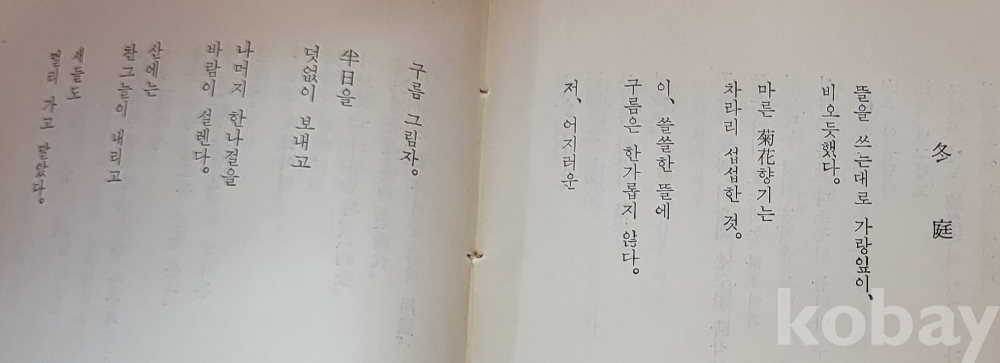 冬庭
뜰을 쓰는대로 가랑잎이、
비오듯했다。
마른 菊花향기는
차라리 섭섭한 것。
이、쓸쓸한 뜰에
구름은 한가롭지 않다。
저、어지러운
구름 그림자。
半日을
덧없이 보내고
나머지 한나절을
바람이 설렌다。
산에는
찬그늘이 내리고
새들도
멀리 가고 말았다。
kobay